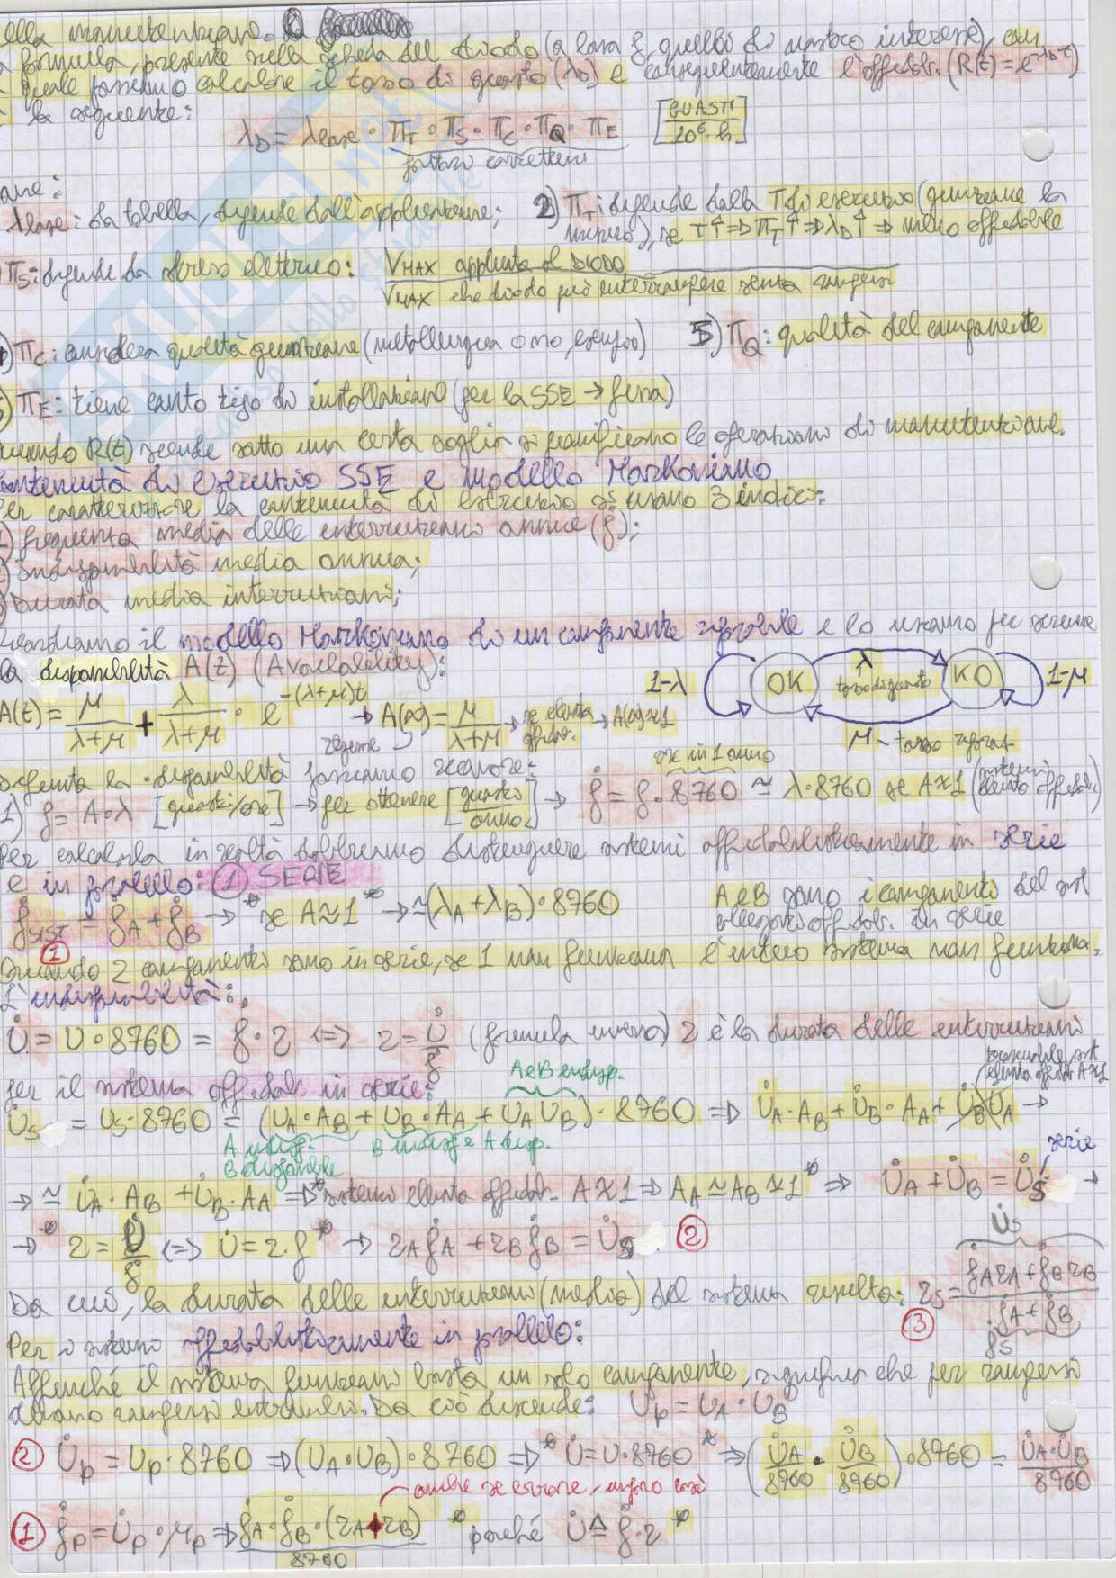 ella manutenzione.
a formula, presente nella scheda del diodo (a casa è quello di nostro interesse), con
quale possiamo calcolare il tasso di guasto (λD) e conseguentemente l'affidab. (R(t)=e^-λDt)
è la seguente:
λD = λbase · ΠT · ΠS · ΠC · ΠQ · ΠE [GUASTI / 10⁶ h]
fattori correttivi
ove:
λbase: da tabella, dipende dall'applicazione; 2) ΠT: dipende dalla T di esercizio (giunzione la
), se T↑ ⇒ ΠT↑ ⇒ λD↑ ⇒ meno affidabile
ΠS: dipende da stress elettrico: VMAX applicata al DIODO
VMAX che diodo può interrompere senza rompersi
ΠC: considera qualità giunzione (metallurgica o no, esempio) 5) ΠQ: qualità del componente
ΠE: tiene conto tipo di installazione (per la SSE → fissa)
quando R(t) scende sotto una certa soglia si pianificano le operazioni di manutenzione.
Continuità di esercizio SSE e modello Markoviano
Per caratterizzare la continuità di esercizio si usano 3 indici:
1) frequenza media delle interruzioni annue (f);
indisponibilità media annua;
Durata media interruzioni;
il modello Markoviano di un componente riparabile e lo usiamo per scrivere
la disponibilità A(t) (Availability):
1-λ OK λ tasso di guasto KO 1-μ
A(t) = μ/(λ+μ) + λ/(λ+μ) · e^-(λ+μ)t → A(∞) = μ/(λ+μ) → se elevata affidab. → A(∞)≈1
regime
μ - tasso riparaz.
ore in 1 anno
Definita la disponibilità possiamo scrivere:
1) f = A·λ [guasti/ore] → per ottenere [guasti/anno] → ḟ = f·8760 ≅ λ·8760 se A≈1 (sistemi elevata affidab.)
Per calcolarla in realtà dobbiamo distinguere sistemi affidabilisticamente in serie
e in parallelo: ① SERIE
ḟSIST = ḟA + ḟB → * se A≈1 * → ≈(λA + λB)·8760 A e B sono i componenti del sist.
① affidab. in serie
Quando 2 componenti sono in serie, se 1 non funziona l'intero sistema non funziona.
L'indisponibilità:
U̇ = U·8760 = ḟ·r ⇔ r = U̇/ḟ (formula inversa) r è la durata delle interruzioni
A e B indisp.
per il sistema affidab. in serie:
U̇s = Us·8760 = (UA·AB + UB·AA + UA UB)·8760 ⇒ U̇A·AB + U̇B·AA + U̇B UA →
A indisp. B disponibile B indisp e A disp.
serie
→ ≈ U̇A·AB + U̇B·AA ⇒ * sistema elevata affidab. A≈1 ⇒ AA≈AB≈1 * ⇒ U̇A + U̇B = U̇s →
→ * r = U̇/ḟ ⇔ U̇ = r·ḟ * → rA ḟA + rB ḟB = U̇s ②
U̇s
Da cui, la durata delle interruzioni (media) del sistema risulta: rs = (ḟA rA + ḟB rB)/(ḟA + ḟB)
③ ḟs
Per i sistemi affidabilisticamente in parallelo:
Affinché il sistema funzioni basta un solo componente, significa che per rompersi
devono rompersi entrambi. Da ciò discende: Up = UA · UB
② U̇p = Up·8760 ⇒ (UA·UB)·8760 ⇒ * U̇=U·8760 * ⇒ (U̇A/8760 · U̇B/8760)·8760 = U̇A·U̇B/8760
anche se errore, così
① ḟp = U̇p·μp ⇒ ḟA·ḟB·(rA+rB)/8760 * poiché U̇ ≜ ḟ·r *